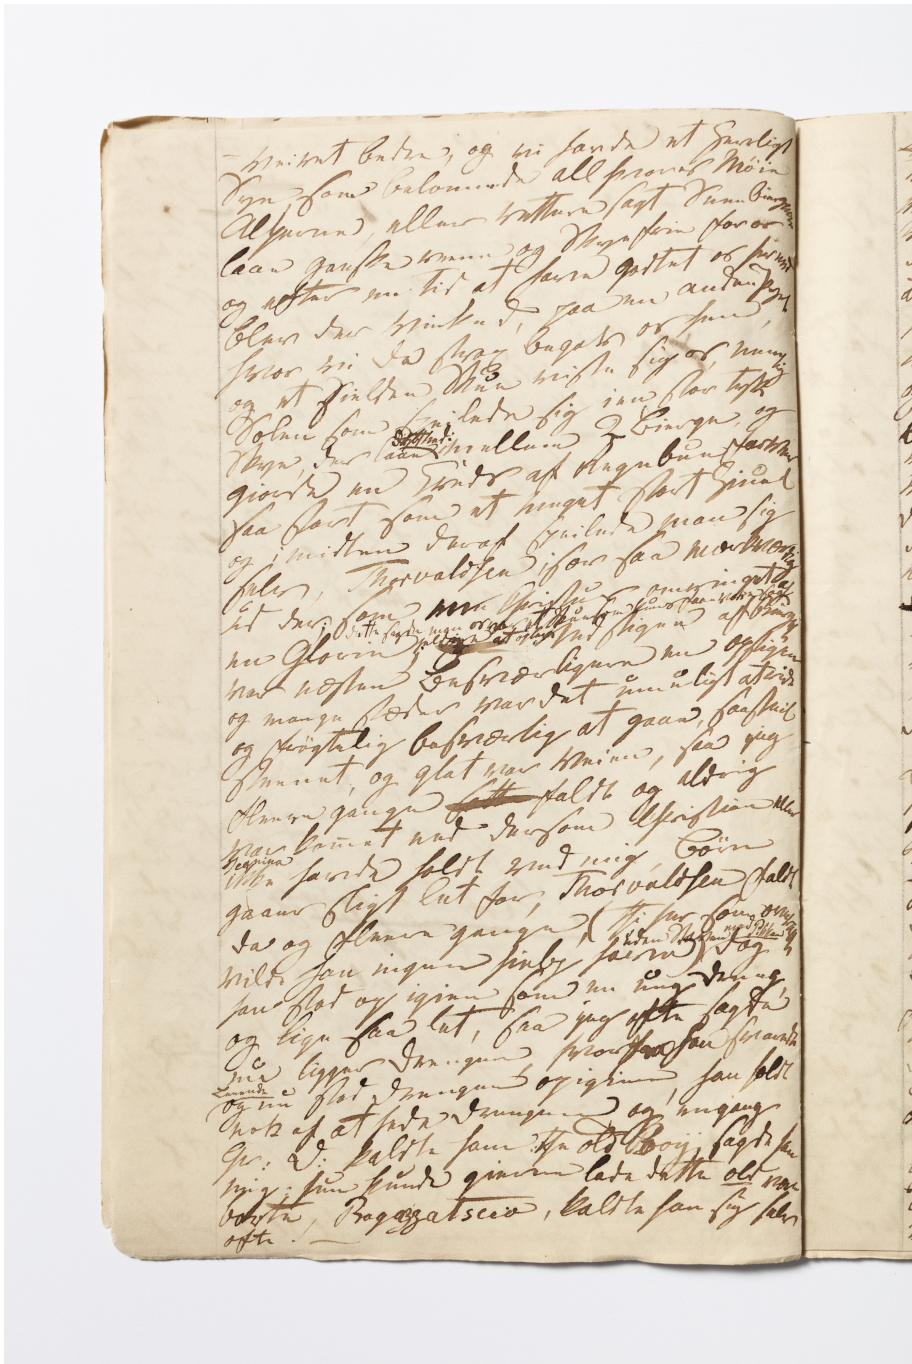 – Veiret bedre, og vi havde et Herligt
Syn, som belønnede all hvores Møie
Alperne, eller rettere sagt Snee biergene
laae ganske reene og Skyefrie for os
og efter en tid at have godtet os her ved
blev der vinked, paa en anden Kant
hvor vi da strax begav os hen,
og et sielden Skue viste sig os, nemlig
Solen som speilede sig i en stor tyk
Skye, der laae mellem 2 Bierge, og
Dette hed:
giorde en Kreds af Regnbue farver
saa stort som et meget stort Hiuul
og i midten deraf speilede man sig
selv, Thorvaldsen, saa saa mærkværdig
ud der, som en Christus omringet af
en Glorie,
Nedstigen af Bierget
var næsten Besværligere en opstigen
og mange stæder var det umuligt at ride
og frøgtelig besværlig at gaae, saa steil
steenet, og glat var Veien, saa jeg
fleere gange faldt og aldrig
var kommet ned dersom Christian eller
Jeanina
ikke havde holdt ved mig, Børn
gaaer sligt let for, Thorvaldsen faldt
da og fleere gange, (thi her som overalt
vilde han ingen hielp have) dog
han stod op igien som en ung dreng,
og lige saa let, saa jeg ofte sagde
nu ligger drengen, hvorfor han svarede
Leende
og nu stod drengen op igien, han holdt
nok af at hede drengen, og engang
Hr: D: kaldte ham the old Boy, sagde han
mig, hun kunde gierne lade dette old være
borte, Ragazzatscio, kaldte han sig selv
ofte. —